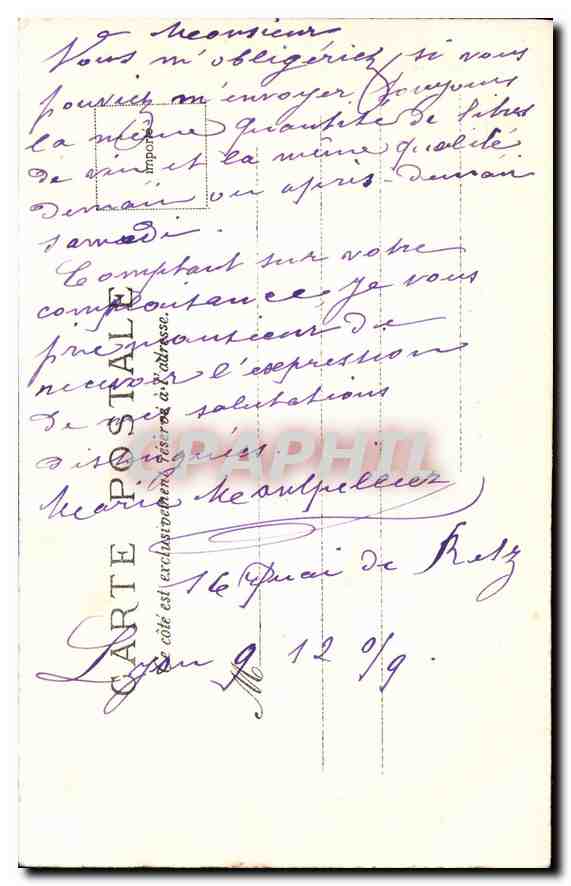 Monsieur
Vous m'obligériez si vous
pouviez m'envoyer toujours
la même quantité de litres
de vin et la même qualité
demain ou après-demain
samedi.
Comptant sur votre
complaisance je vous
prie monsieur de
recevoir l'expression
de mes salutations
distinguées.
Marie Montpellier
16 quai de Retz
Lyon 9 12 0/9.
CARTE POSTALE
Ce côté est exclusivement réservé à l'adresse.
M
imprimé
CPAPHIL